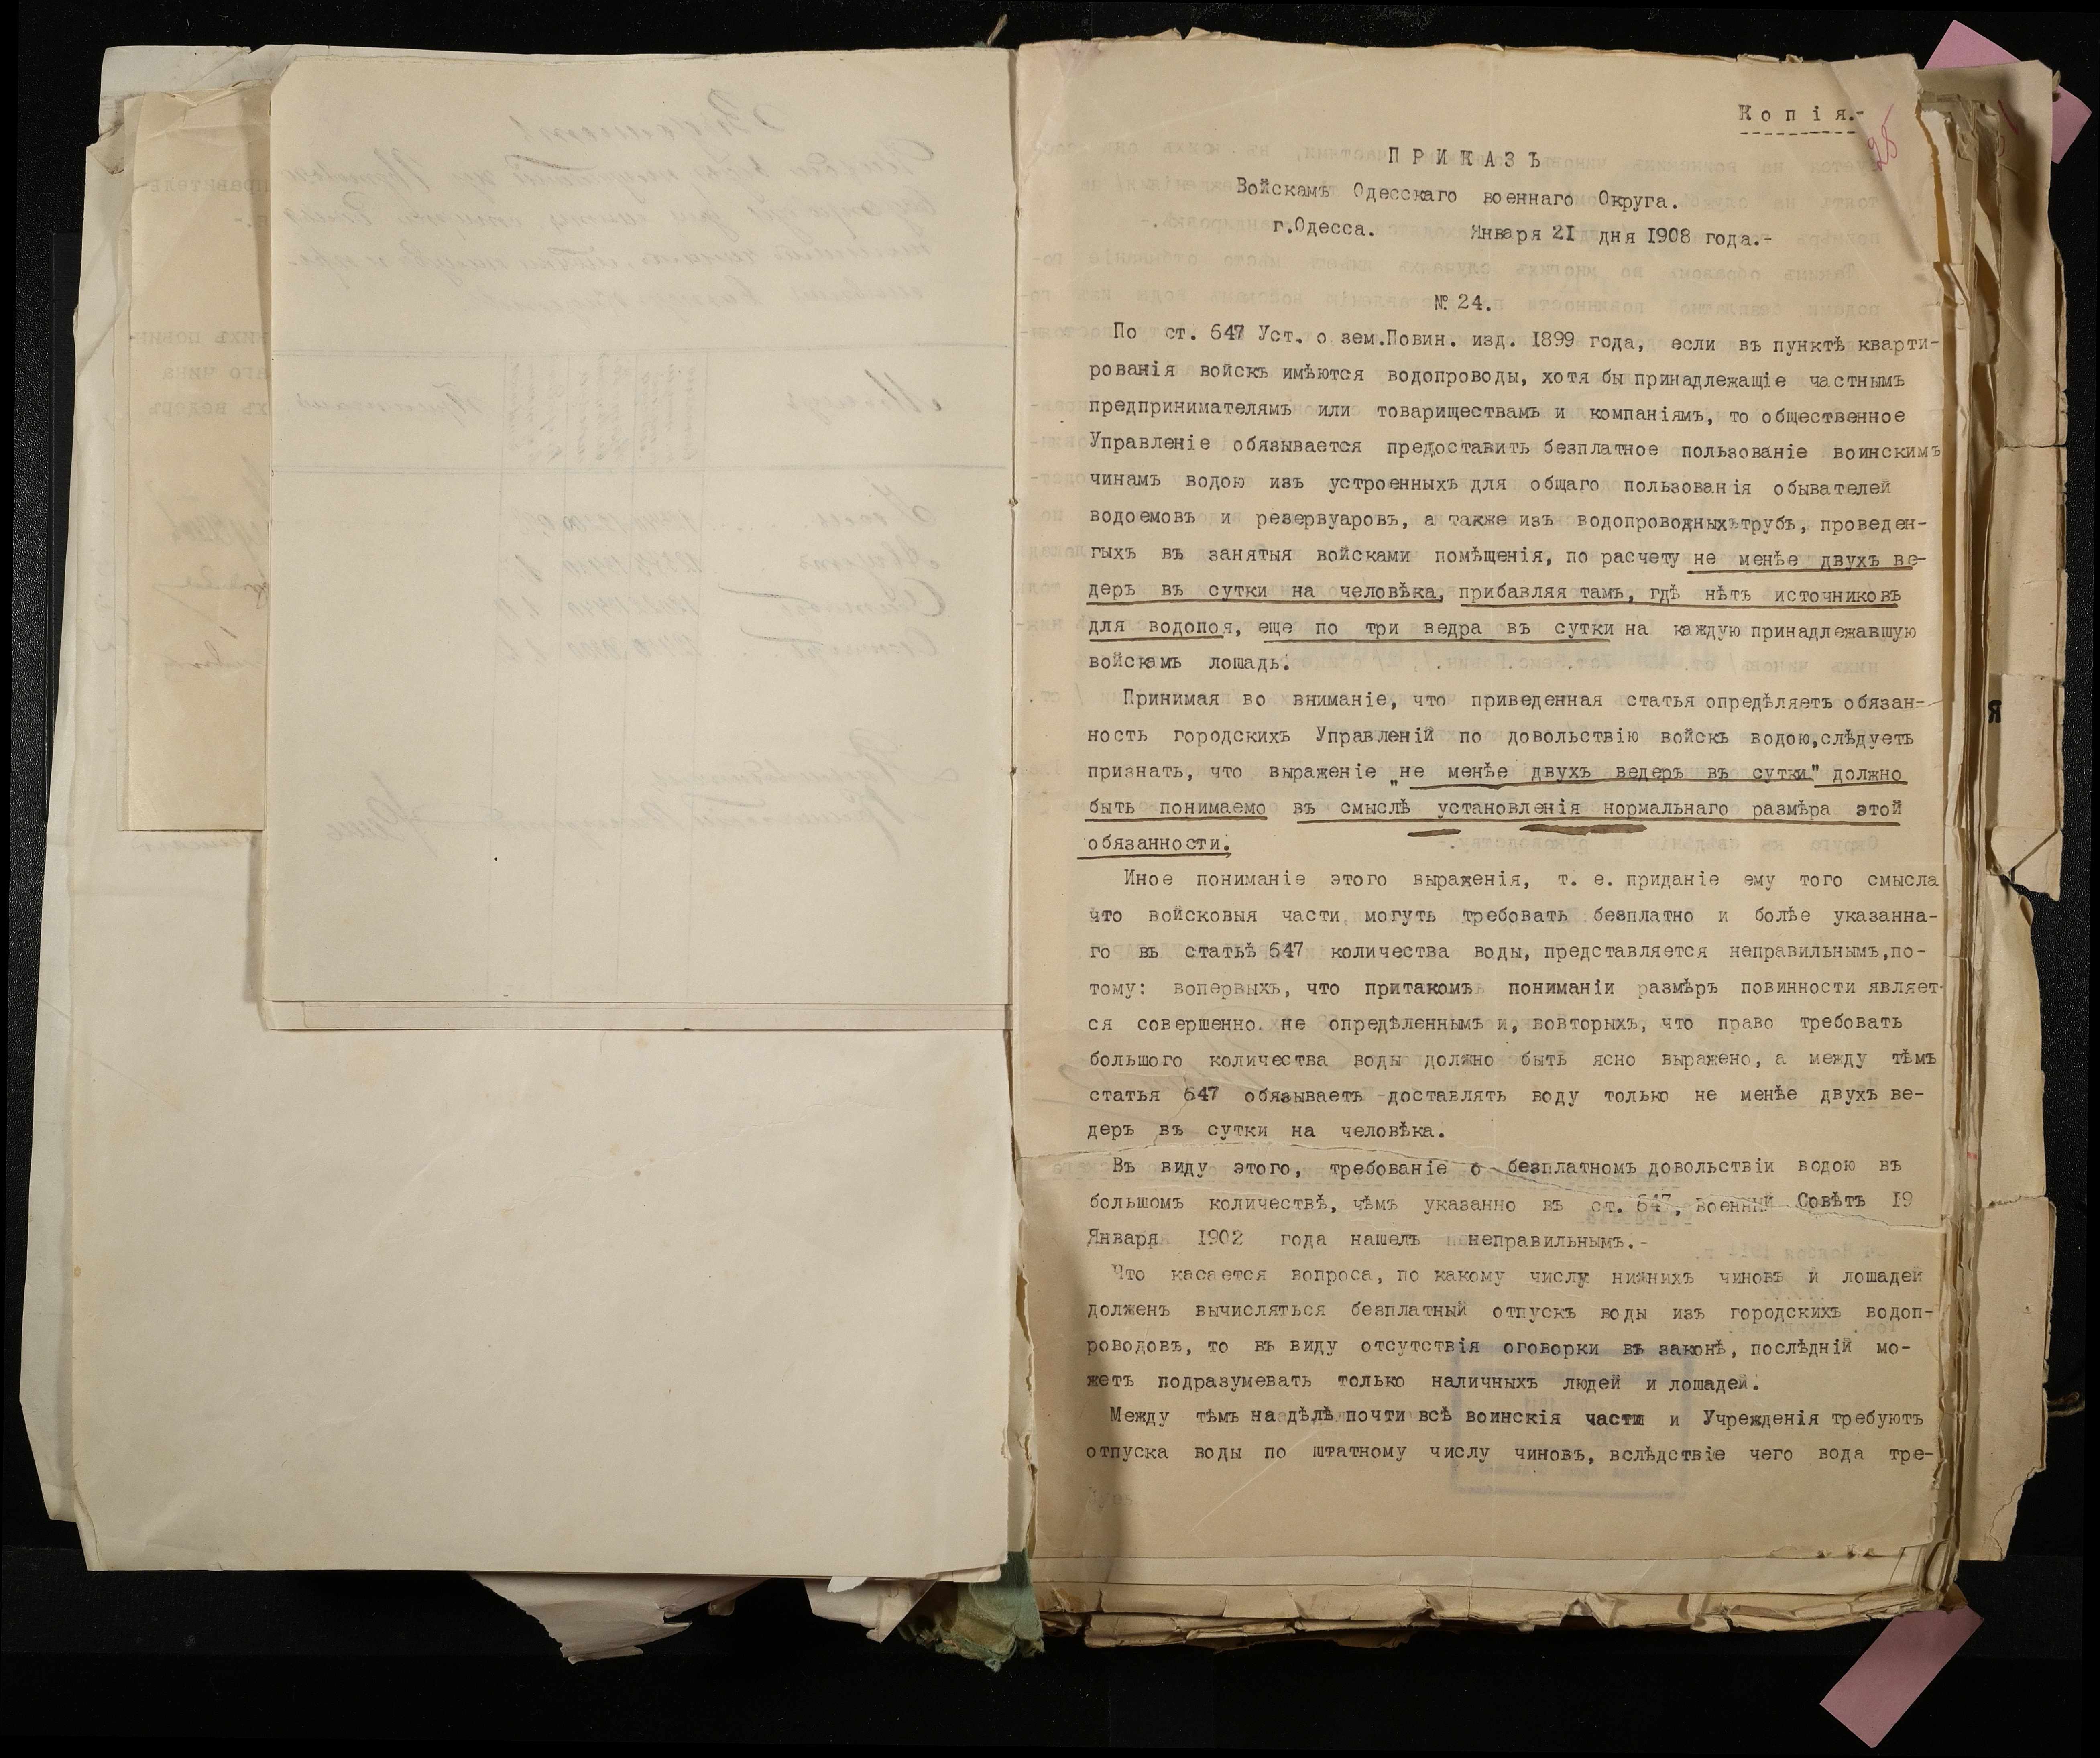 Копія.-
25
ПРИКАЗЪ
Войскамъ Одесскаго военнаго Округа.
г.Одесса. Января 21 дня 1908 года.-
№ 24.
По ст. 647 Уст. о зем.Повин. изд. 1899 года, если въ пунктѣ кварти-
рованія войскъ имѣются водопроводы, хотя бы принадлежащіе частнымъ
предпринимателямъ или товариществамъ и компаніямъ, то общественное
Управленіе обязывается предоставить безплатное пользованіе воинскимъ
чинамъ водою изъ устроенныхъ для общаго пользованія обывателей
водоемовъ и резервуаровъ, а также изъ водопроводныхътрубъ, проведен-
гыхъ въ занятыя войсками помѣщенія, по расчету не менѣе двухъ ве-
деръ въ сутки на человѣка, прибавляя тамъ, гдѣ нѣтъ источниковъ
для водопоя, еще по три ведра въ сутки на каждую принадлежавшую
войскамъ лошадь.
Принимая во вниманіе, что приведенная статья опредѣляетъ обязан-
ность городскихъ Управленій по довольствію войскъ водою,слѣдуетъ
признать, что выраженіе „не менѣе двухъ ведеръ въ сутки" должно
быть понимаемо въ смыслѣ установленія нормальнаго размѣра этой
обязанности.
Иное пониманіе этого выраженія, т. е. приданіе ему того смысла
что войсковыя части могутъ требовать безплатно и болѣе указанна-
го въ статьѣ 647 количества воды, представляется неправильнымъ,по-
тому: вопервыхъ, что притакомъ пониманіи размѣръ повинности являет-
ся совершенно не опредѣленнымъ и, вовторыхъ, что право требовать
большого количества воды должно быть ясно выражено, а между тѣмъ
статья 647 обязываетъ доставлять воду только не менѣе двухъ ве-
деръ въ сутки на человѣка.
Въ виду этого, требованіе о безплатномъ довольствіи водою въ
большомъ количествѣ, чѣмъ указанно въ ст. 647, военный Совѣтъ 19
Января 1902 года нашелъ неправильнымъ.-
Что касается вопроса, по какому числу нижнихъ чиновъ и лошадей
долженъ вычисляться безплатный отпускъ воды изъ городскихъ водоп-
роводовъ, то въ виду отсутствія оговорки въ законѣ, послѣдній мо-
жетъ подразумевать только наличныхъ людей и лошадей.
Между тѣмъ на дѣлѣ почти всѣ воинскія части и Учрежденія требуютъ
отпуска воды по штатному числу чиновъ, вслѣдствіе чего вода тре-